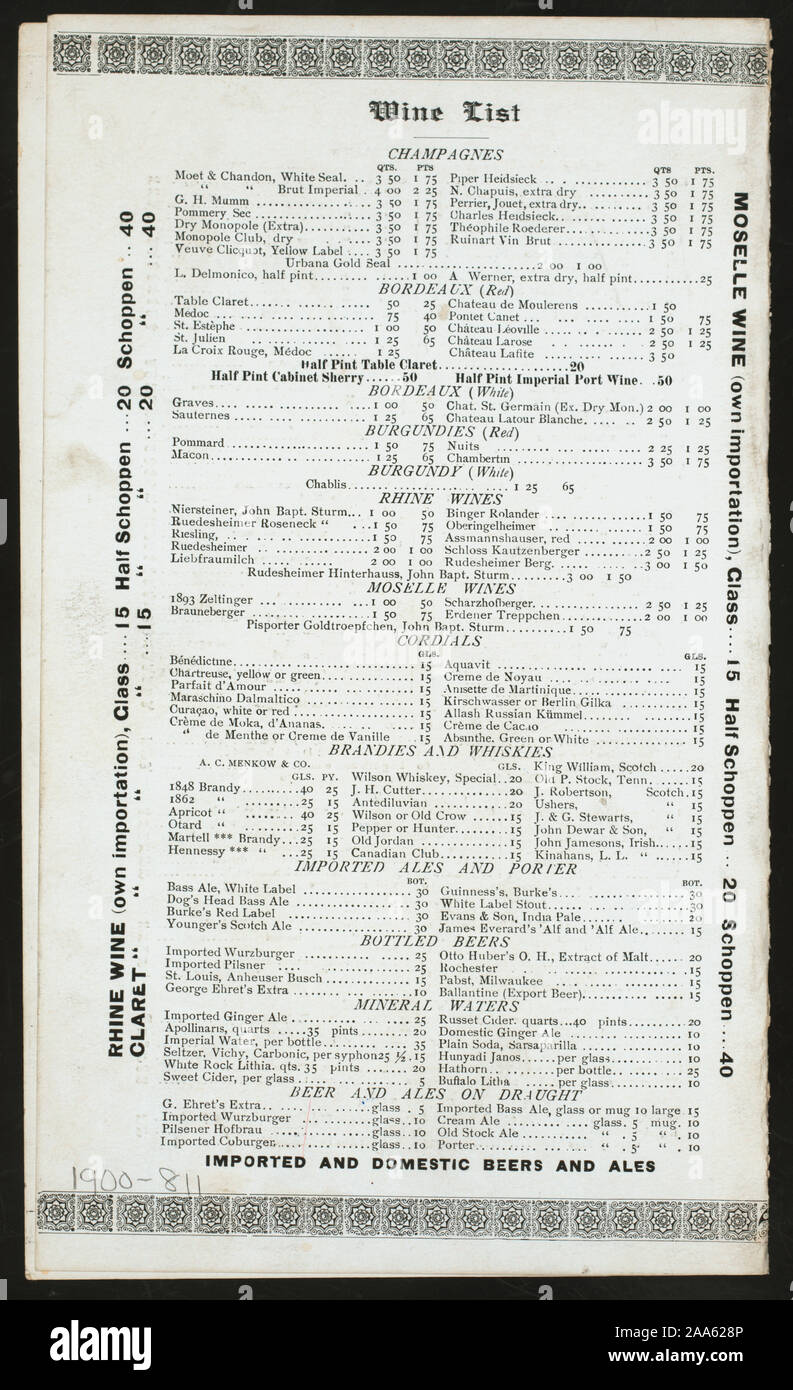 Wine List
CHAMPAGNES
QTS. PTS
Moet & Chandon, White Seal. .. 3 50 1 75
“ “ Brut Imperial . 4 00 2 25
G. H. Mumm .................. 3 50 1 75
Pommery Sec ................. 3 50 1 75
Dry Monopole (Extra).......... 3 50 1 75
Monopole Club, dry .... 3 50 1 75
Veuve Clicquot, Yellow Label .... 3 50 1 75
QTS PTS.
Piper Heidsieck ............... 3 50 1 75
N. Chapuis, extra dry .......... 3 50 1 75
Perrier, Jouet, extra dry.......... 3 50 1 75
Charles Heidsieck............... 3 50 1 75
Théophile Roederer............ 3 50 1 75
Ruinart Vin Brut ............... 3 50 1 75
Urbana Gold Seal .................... 2 00 1 00
L. Delmonico, half pint............... 1 00 A Werner, extra dry, half pint............25
BORDEAUX (Red)
Table Claret.................. 50 25
Médoc ..................... 75 40
St. Estèphe ................. 1 00 50
St. Julien ................. 1 25 65
La Croix Rouge, Médoc ...... 1 25
Chateau de Moulerens .......... 1 50
Pontet Canet .................. 1 50 75
Château Léoville ............... 2 50 1 25
Château Larose ............. 2 50 1 25
Château Lafite ............... 3 50
Half Pint Table Claret....................20
Half Pint Cabinet Sherry......50 Half Pint Imperial Port Wine. .50
BORDEAUX (White)
Graves..................... 1 00 50 Chat. St. Germain (Ex. Dry Mon.) 2 00 1 00
Sauternes ................. 1 25 65 Chateau Latour Blanche....... 2 50 1 25
BURGUNDIES (Red)
Pommard .................. 1 50 75 Nuits .................. 2 25 1 25
Macon..................... 1 25 65 Chambertin .................. 3 50 1 75
BURGUNDY (White)
Chablis........................ 1 25 65
RHINE WINES
Niersteiner, John Bapt. Sturm... 1 00 50
Ruedesheimer Roseneck “ ... 1 50 75
Riesling, .................. 1 50 75
Ruedesheimer ............... 2 00 1 00
Liebfraumilch ............ 2 00 1 00
Binger Rolander ............... 1 50 75
Oberingelheimer ............ 1 50 75
Assmannshauser, red .......... 2 00 1 00
Schloss Kautzenberger ......... 2 50 1 25
Rudesheimer Berg............ 3 00 1 50
Rudesheimer Hinterhauss, John Bapt. Sturm......... 3 00 1 50
MOSELLE WINES
1893 Zeltinger ............... 1 00 50 Scharzhofberger............... 2 50 1 25
Brauneberger ............... 1 50 75 Erdener Treppchen............ 2 00 1 00
Pisporter Goldtroepfchen, John Bapt. Sturm.......... 1 50 75
CORDIALS
GLS.
Bénédictine........................ 15
Chartreuse, yellow or green............ 15
Parfait d'Amour .................. 15
Maraschino Dalmaltico ............... 15
Curaçao, white or red ............... 15
Crème de Moka, d'Ananas. .......... 15
“ de Menthe or Creme de Vanille .15
GLS.
Aquavit ........................ 15
Creme de Noyau ............... 15
Anisette de Martinique............... 15
Kirschwasser or Berlin Gilka ......... 15
Allash Russian Kümmel............ 15
Crème de Cacao ............... 15
Absinthe, Green or White ............ 15
BRANDIES AND WHISKIES
A. C. MENKOW & CO.
GLS. PY.
1848 Brandy.........40 25
1862 “ .........25 15
Apricot “ ........ 40 25
Otard “ .........25 15
Martell *** Brandy...25 15
Hennessy *** “ ...25 15
GLS.
Wilson Whiskey, Special..20
J. H. Cutter...............20
Antediluvian ............20
Wilson or Old Crow ......15
Pepper or Hunter.........15
Old Jordan ...............15
Canadian Club............15
King William, Scotch .....20
Old P. Stock, Tenn. .....15
J. Robertson, Scotch.15
Ushers, “ 15
J. & G. Stewarts, “ 15
John Dewar & Son, “ 15
John Jamesons, Irish......15
Kinahans, L. L. “ ......15
IMPORTED ALES AND PORTER
BOT.
Bass Ale, White Label .................. 30
Dog's Head Bass Ale .................. 30
Burke's Red Label .................. 30
Younger's Scotch Ale .................. 30
BOT.
Guinness's, Burke's.................. 30
White Label Stout.................. 30
Evans & Son, India Pale............ 20
James Everard's 'Alf and 'Alf Ale....... 15
BOTTLED BEERS
Imported Wurzburger ............... 25
Imported Pilsner .................. 25
St. Louis, Anheuser Busch ............ 15
George Ehret's Extra ............... 10
Otto Huber's O. H., Extract of Malt...... 20
Rochester .................. 15
Pabst, Milwaukee ............... 15
Ballantine (Export Beer)............... 15
MINERAL WATERS
Imported Ginger Ale .................. 25
Apollinaris, quarts .....35 pints ........ 20
Imperial Water, per bottle............ 35
Seltzer, Vichy, Carbonic, per syphon 25 ½ .15
White Rock Lithia. qts. 35 pints ....... 20
Sweet Cider, per glass ............... 5
Russet Cider. quarts...40 pints......... 20
Domestic Ginger Ale ............... 10
Plain Soda, Sarsaparilla ............... 10
Hunyadi Janos......per glass............ 10
Hathorn.........per bottle............ 25
Buffalo Litha .....per glass............ 10
BEER AND ALES ON DRAUGHT
G. Ehret's Extra...............glass . 5
Imported Wurzburger ............glass.. 10
Pilsener Hofbrau ...............glass.. 10
Imported Coburger...............glass.. 10
Imported Bass Ale, glass or mug 10 large 15
Cream Ale ............... glass. 5 mug. 10
Old Stock Ale ............ “ . 5 “ . 10
Porter.................. “ . 5 “ . 10
IMPORTED AND DOMESTIC BEERS AND ALES
RHINE WINE (own importation), Glass .... 15 Half Schoppen ... 20 Schoppen .. 40
CLARET “ “ “ ... 15 “ “ ... 20 “ ... 40
MOSELLE WINE (own importation), Glass.... 15 Half Schoppen .. 20 Schoppen ... 40
1900-811
alamy
a
alamy
Image ID: 2AA628P
www.alamy.com